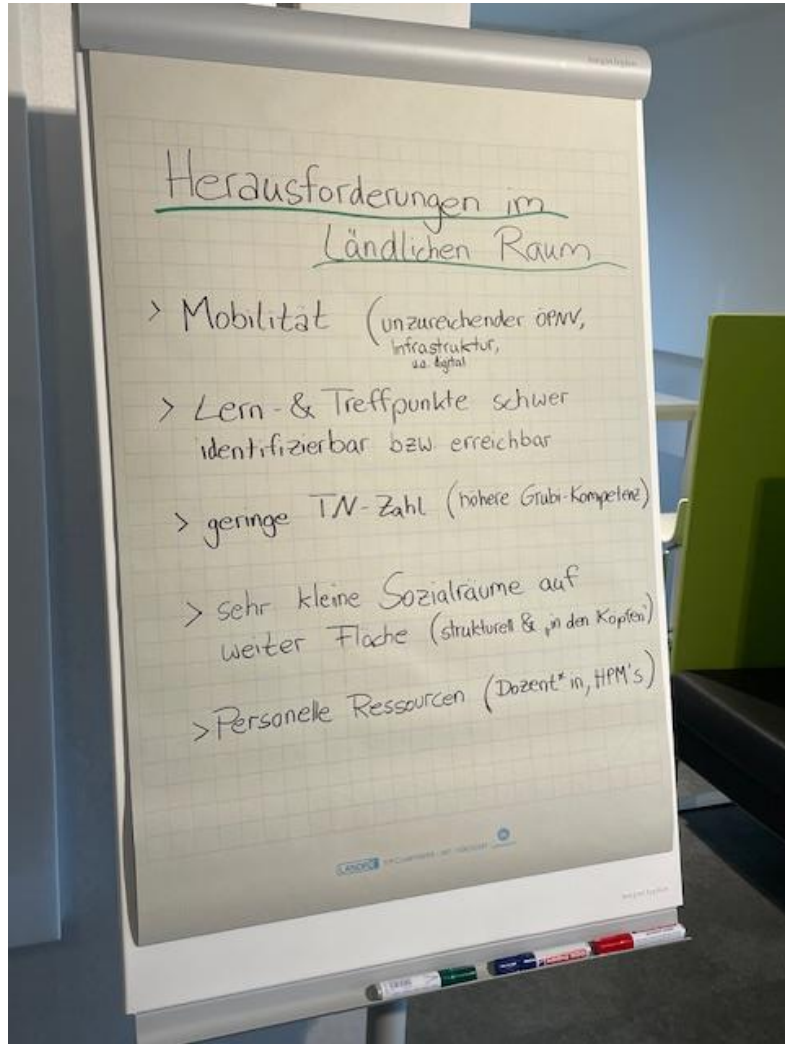 Herausforderungen im
Ländlichen Raum
> Mobilität (unzureichender ÖPNV,
Infrastruktur,
u.a. digital
> Lern- & Treffpunkte schwer
identifizierbar bzw. erreichbar
> geringe TN-Zahl (höhere Grubi-Kompetenz)
> sehr kleine Sozialräume auf
weiter Fläche (strukturell & "in den Köpfen")
> Personelle Ressourcen (Dozent*in, HPM's)
LANDRÉ